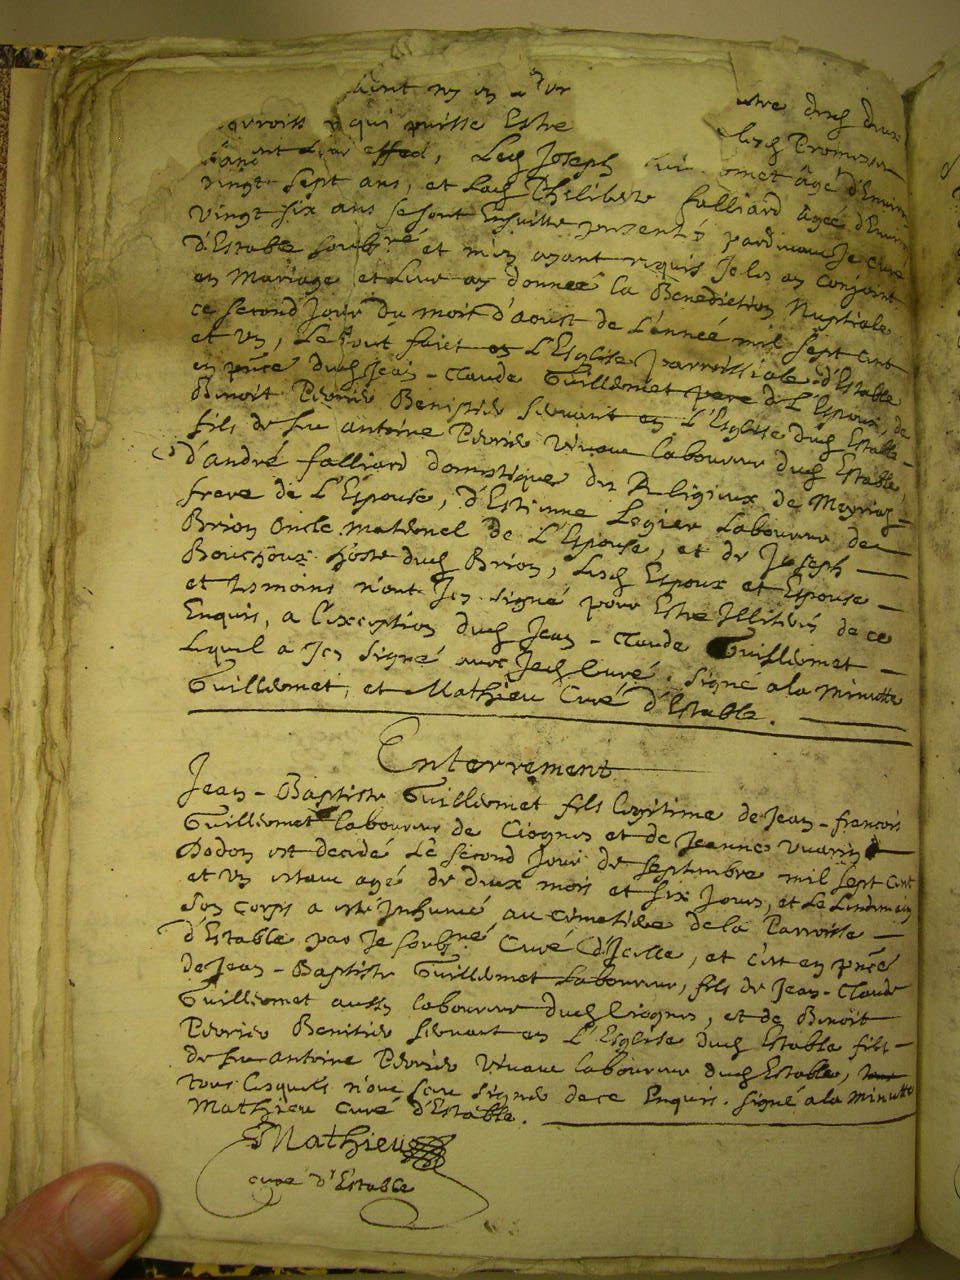 qui puisse Estre
effect, Led Joseph omet âgé d'Environ
vingt sept ans, et Lad Philiberte falliard âgée d'Environ
vingt six ans se sont Ensuitte presentés pardevant Je curé
d'Estable soubné et m'en ayant requis Je les ay conjoint
en Mariage et Leur ay donneé la Benediction Nuptiale
ce second Jour du mois d'aoust de L'enneé mil sept cent
et un, Le tout faict en L'Esglise parroissiale d'Estable
en pnce dud Jean-Claude Guillermet pere de L'Espoux, de
Benoit Perrier Benitier servant en L'Esglise dud Estable
fils de feu antoine Perrier vivant laboureur dud Estable,
d'andré falliard domestique des Religieux de Meyriaz
frere de L'Espouse, d'Estienne Legier Laboureur de
Brion oncle maternel de L'Espouse, et de Joseph
Bouchoux hoste dud Brion, Lesd Espoux et Espouse
et tesmoins n'ont Icy signé pour Estre Illiterés de ce
Enquis, a l'exception dud Jean-Claude Guillermet
Lequel a Icy signé avec Jed Curé. signé a la minutte
Guillermet, et Mathieu Curé d'Estable.
Enterrement
Jean-Baptiste Guillermet fils legitime de Jean-francois
Guillermet laboureur de Ciognes et de Jeanne Vuarin
Dodon est decedé Le second Jour de septembre mil sept cent
et un estant agé de deux mois et six Jours, et Le Lendemain
son corps a esté Inhumé au cimetiere de la Parroisse
d'Estable par Je soubné Curé d'Icelle, et c'est en pnce
de Jean-Baptiste Guillermet Laboureur, fils de Jean-Claude
Guillermet aussy laboureur dud Ciognes, et de Benoit
Perrier Benitier servant en L'Esglise dud Estable fils
de feu antoine Perrier vivant laboureur dud Estable,
tous lesquels n'ont sceu signer de ce Enquis. signé a la minutte
Mathieu curé d'Estable.
Mathieu
curé d'Estable